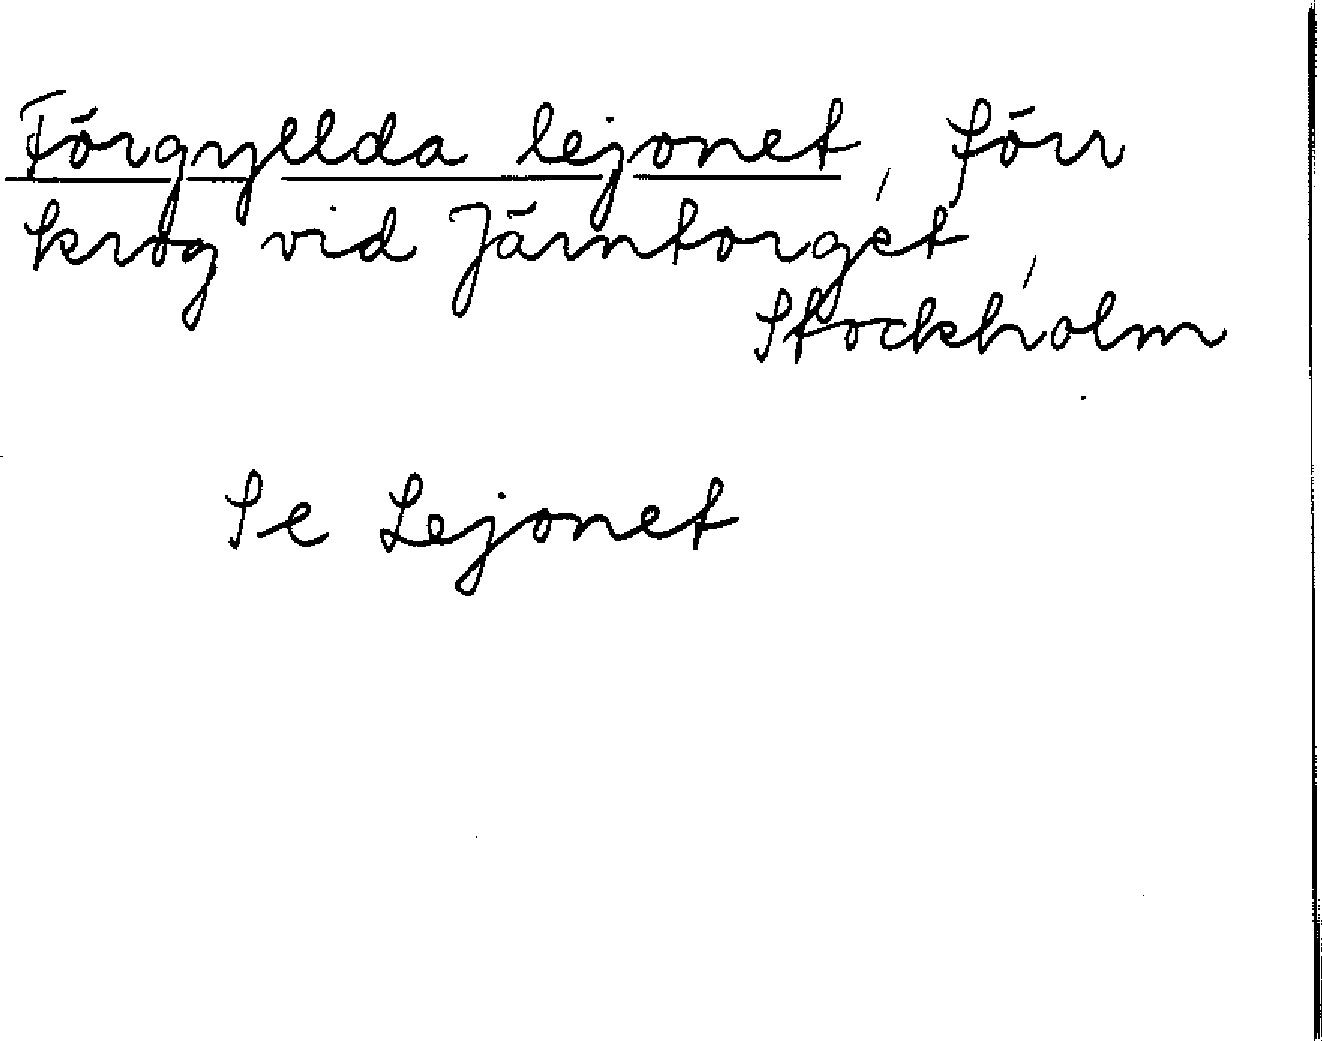 Förgyllda lejonet, förr
krog vid Järntorget,
Stockholm
Se Lejonet